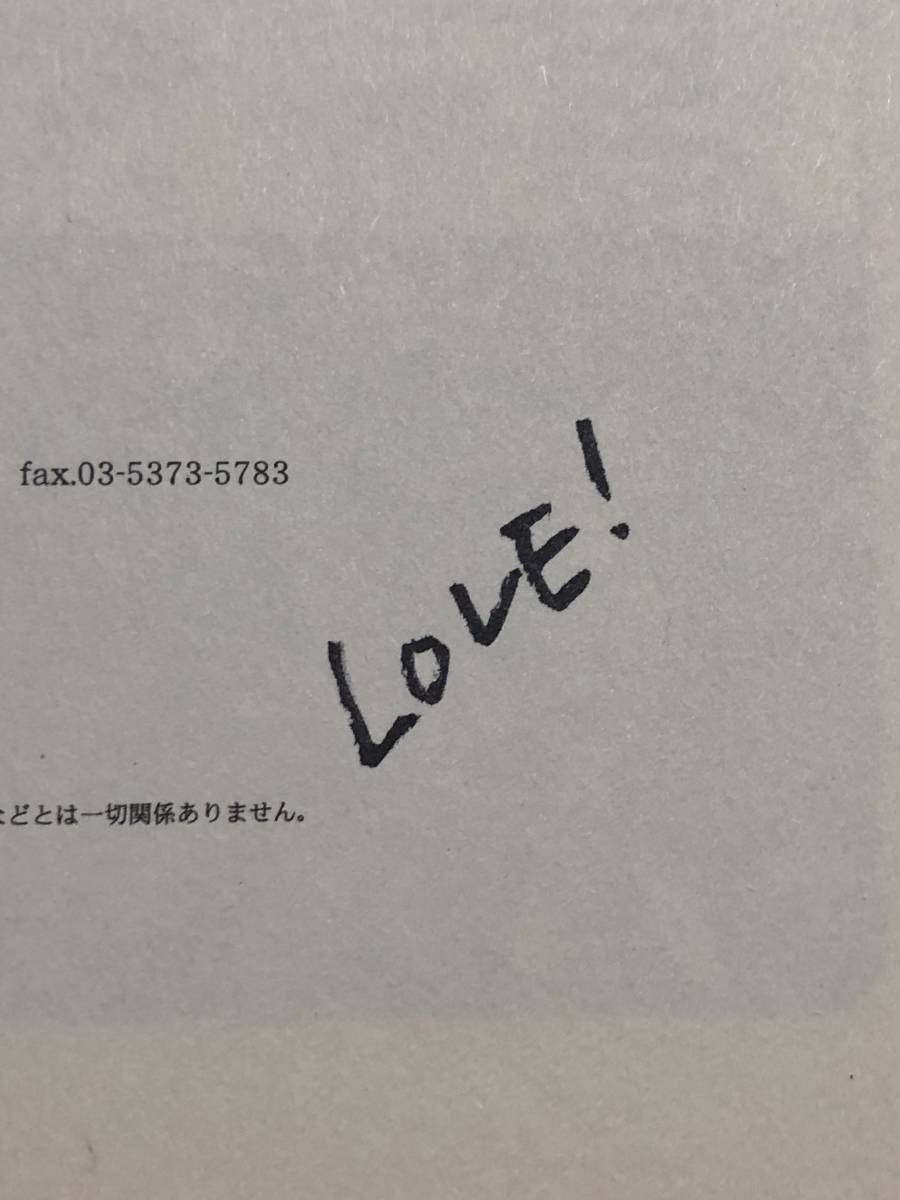 fax.03-5373-5783
LOVE!
などとは一切関係ありません。